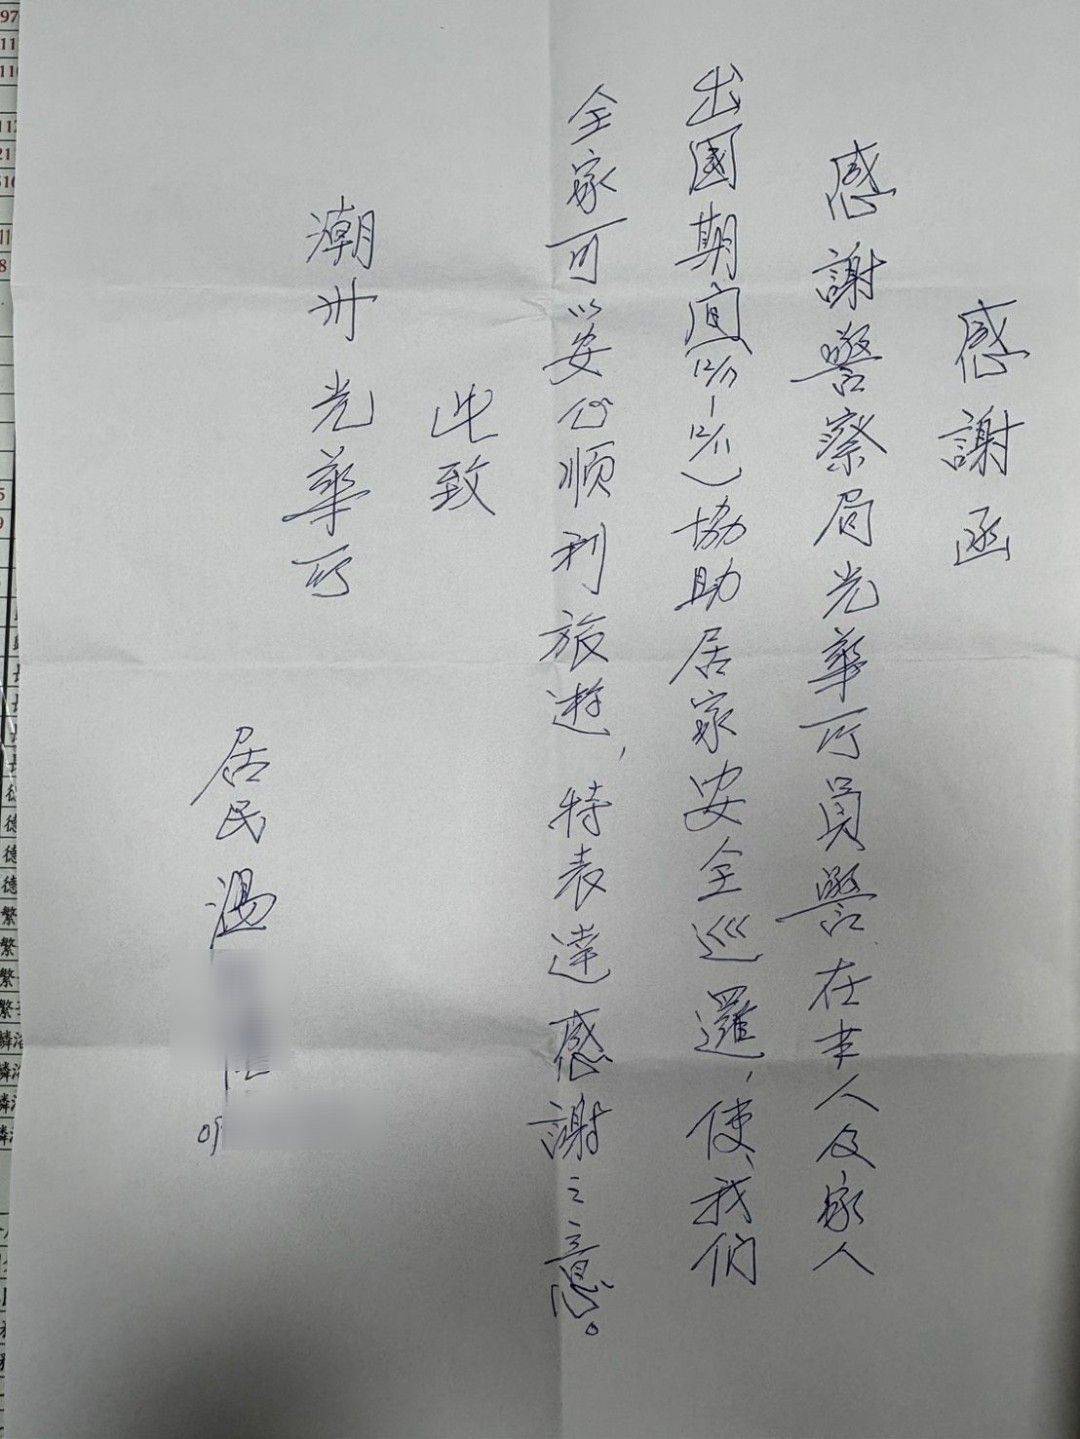 感謝函
感謝警察局光華所員警在本人及家人
出國期間(12/7-12/11)協助居家安全巡邏,使我們
全家可以安心順利旅遊,特表達感謝之意。
此致
潮州光華所
居民 湯
09